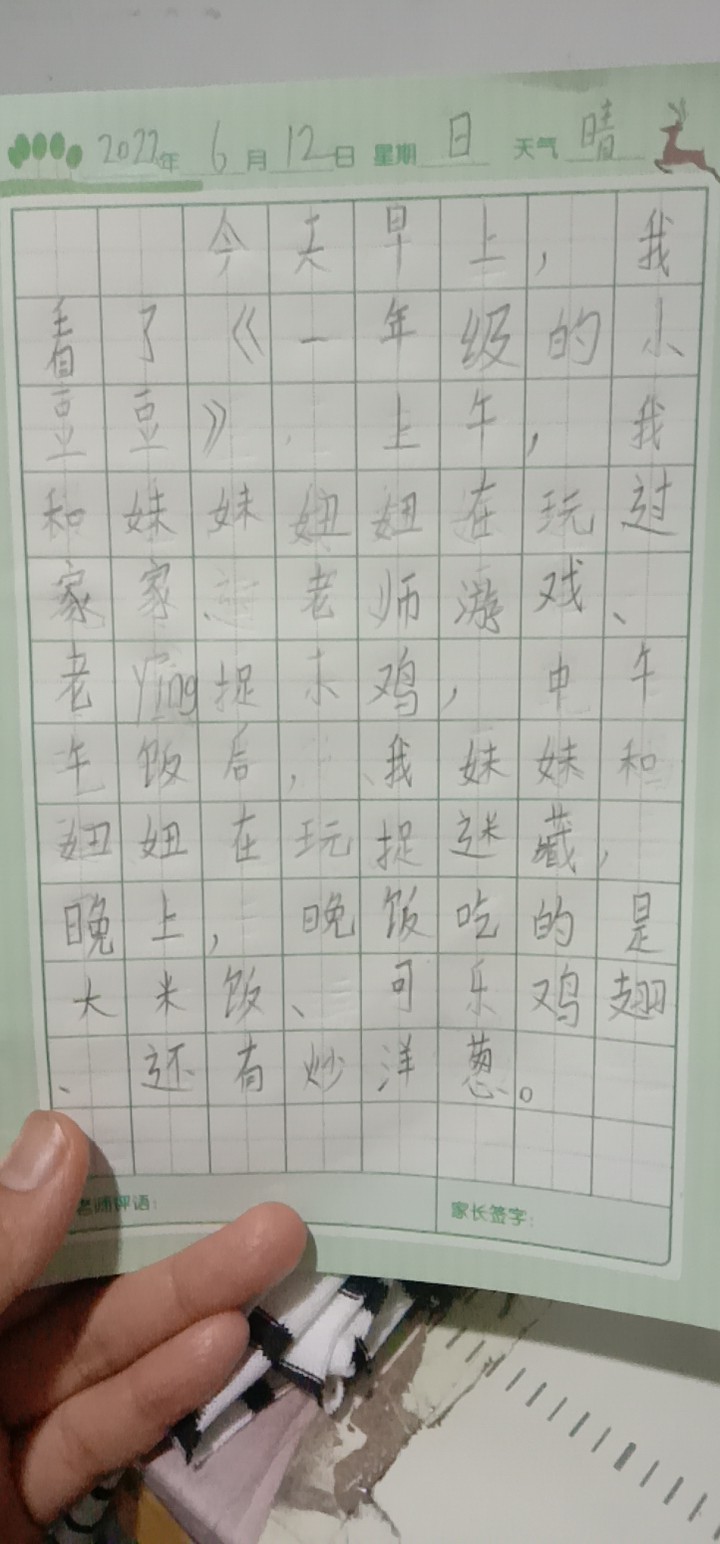 2022年 6月 12日 星期 日 天气 晴
今天早上，我
看了《一年级的小
豆豆》. 上午，我
和妹妹妞妞在玩过
家家、老师游戏、
老ying捉小鸡，中午
午饭后，我妹妹和
妞妞在玩捉迷藏，
晚上，晚饭吃的是
大米饭、可乐鸡翅
、还有炒洋葱。
老师评语：
家长签字：